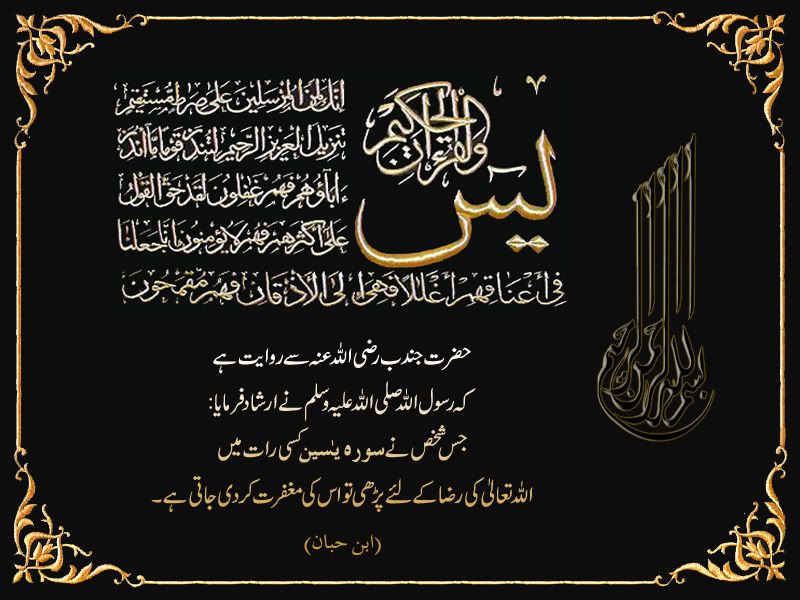 يس
والقرءان الحكيم
إنك لمن المرسلين على صراط مستقيم
تنزيل العزيز الرحيم لتنذر قوما ما أنذر
ءاباؤهم فهم غفلون لقد حق القول
على أكثرهم فهم لا يؤمنون إنا جعلنا
في أعناقهم أغللا فهي إلى الأذقان فهم مقمحون
بسم الله الرحمن الرحيم
حضرت جندب رضی اللہ عنہ سے روایت ہے
کہ رسول اللہ صلی اللہ علیہ وسلم نے ارشاد فرمایا:
جس شخص نے سورہ یٰسین کسی رات میں
اللہ تعالیٰ کی رضا کے لئے پڑھی تو اس کی مغفرت کردی جاتی ہے۔
(ابن حبان)